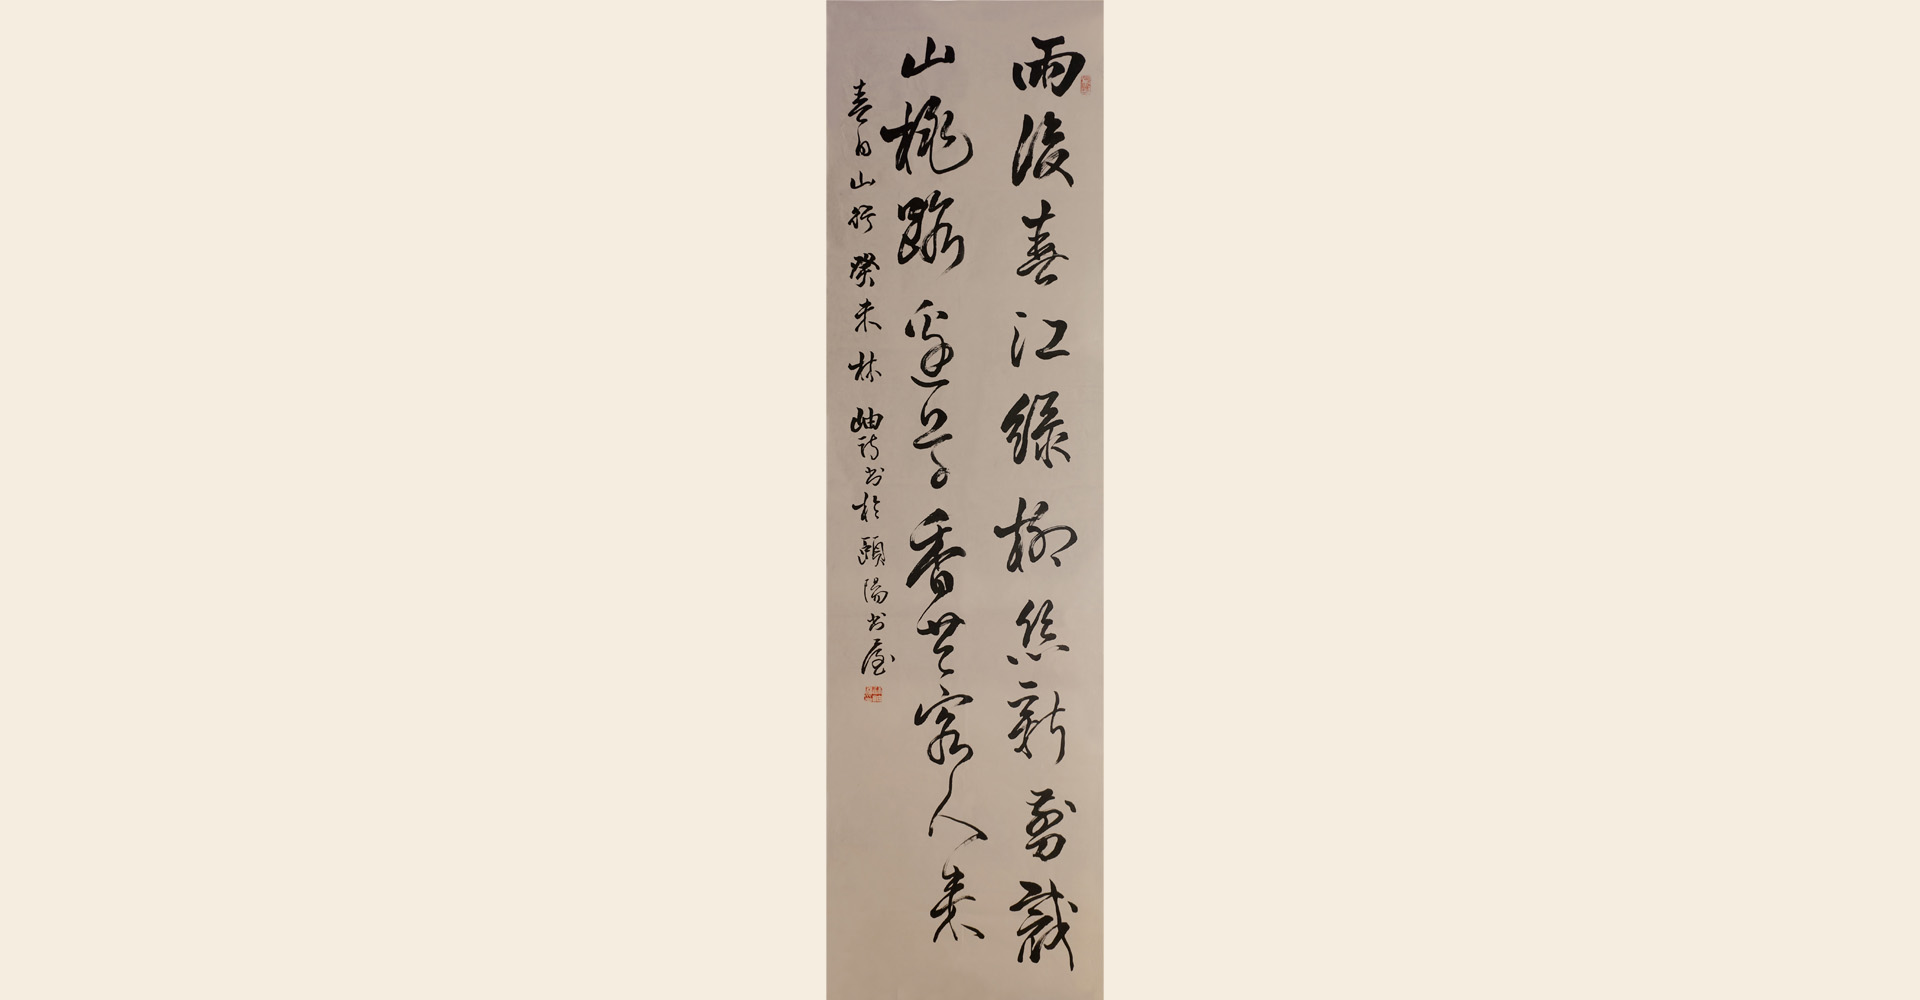 雨後春江綠柳絲新剪裁
山桃路邊早香芸客人來
春日山行 癸未 林岫詩書於頤陽書屋